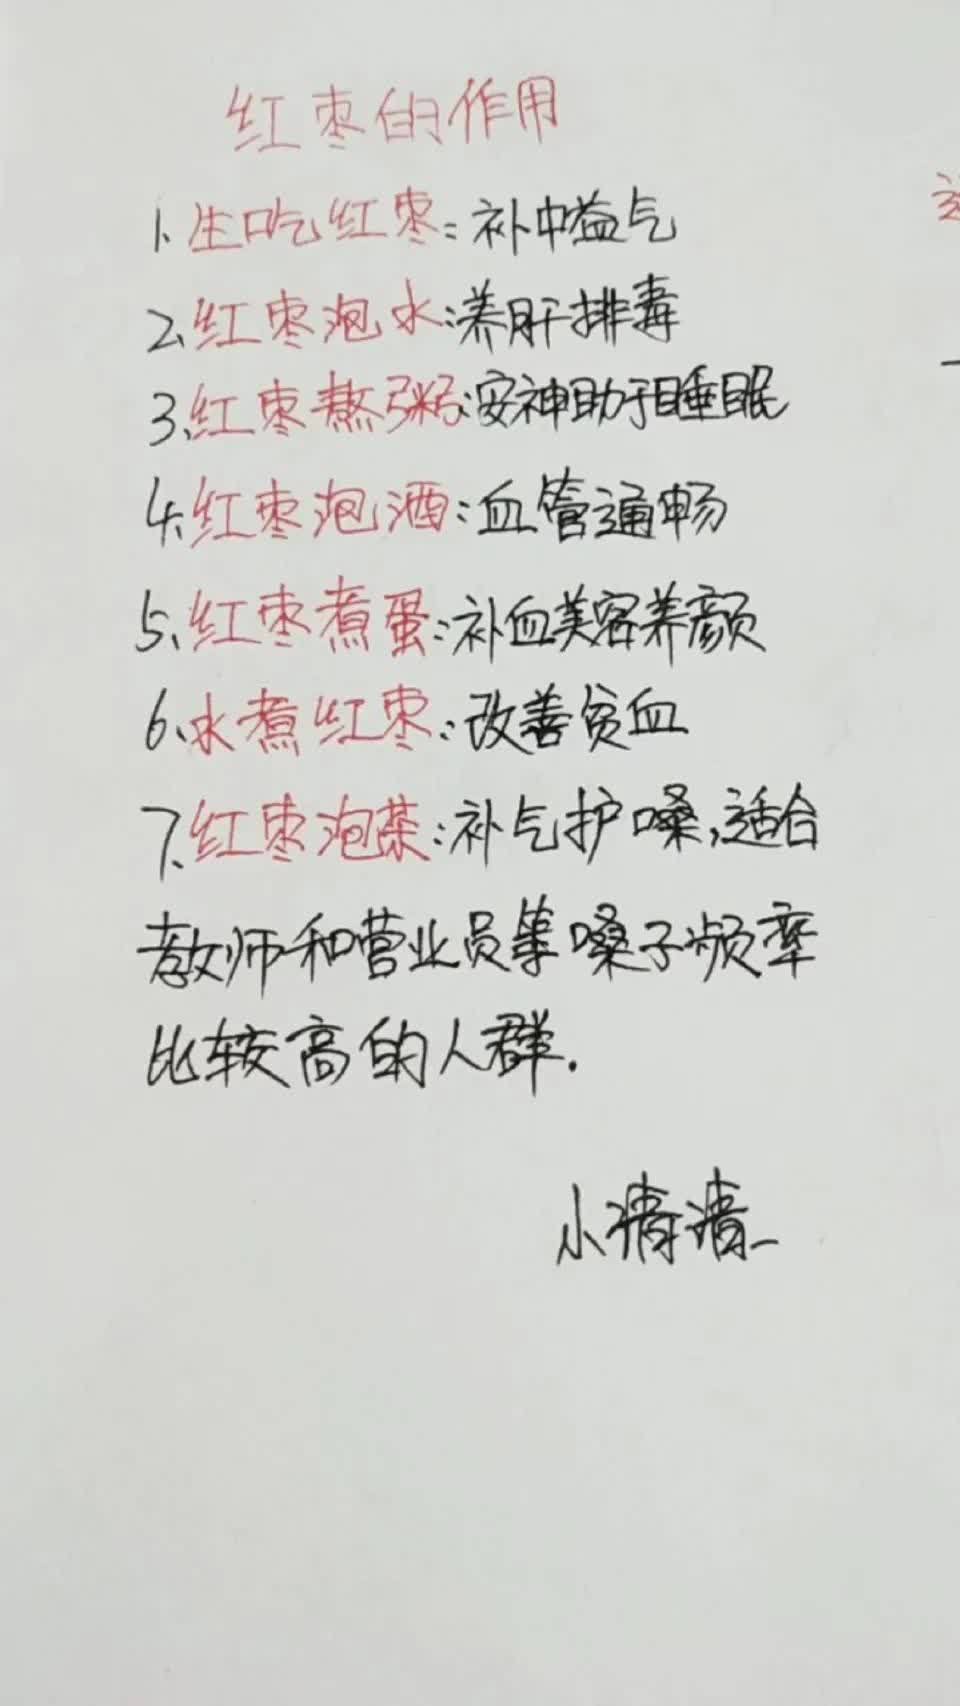 红枣的作用
1、生吃红枣：补中益气
2、红枣泡水：养肝排毒
3、红枣熬粥：安神助于睡眠
4、红枣泡酒：血管通畅
5、红枣煮蛋：补血美容养颜
6、水煮红枣：改善贫血
7、红枣泡茶：补气护嗓，适合
教师和营业员等嗓子频率
比较高的人群.
小清清